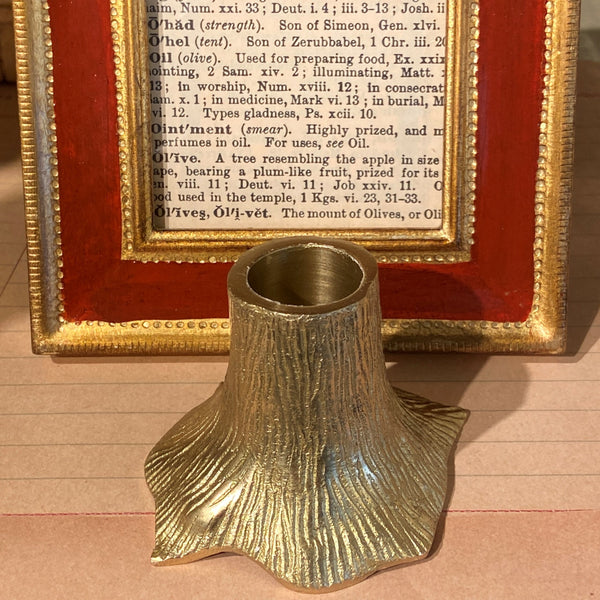 aim, Num. xxi. 33; Deut. i. 4; iii. 3–13; Josh.
Ō′hăd (strength). Son of Simeon, Gen. xlvi.
Ō′hel (tent). Son of Zerubbabel, 1 Chr. iii. 20
Oil (olive). Used for preparing food, Ex. xxix
ointing, 2 Sam. xiv. 2; illuminating, Matt.
13; in worship, Num. xviii. 12; in consecrat
am. x. 1; in medicine, Mark vi. 13; in burial, M
vi. 12. Types gladness, Ps. xcii. 10.
Oint′ment (smear). Highly prized, and m
perfumes in oil. For uses, see Oil.
Ŏl′ĭve. A tree resembling the apple in size
ape, bearing a plum-like fruit, prized for its
en. viii. 11; Deut. vi. 11; Job xxiv. 11. O
ood used in the temple, 1 Kgs. vi. 23, 31–33.
Ŏl′ĭveş, Ŏl′i̱-vĕt. The mount of Olives, or Oli